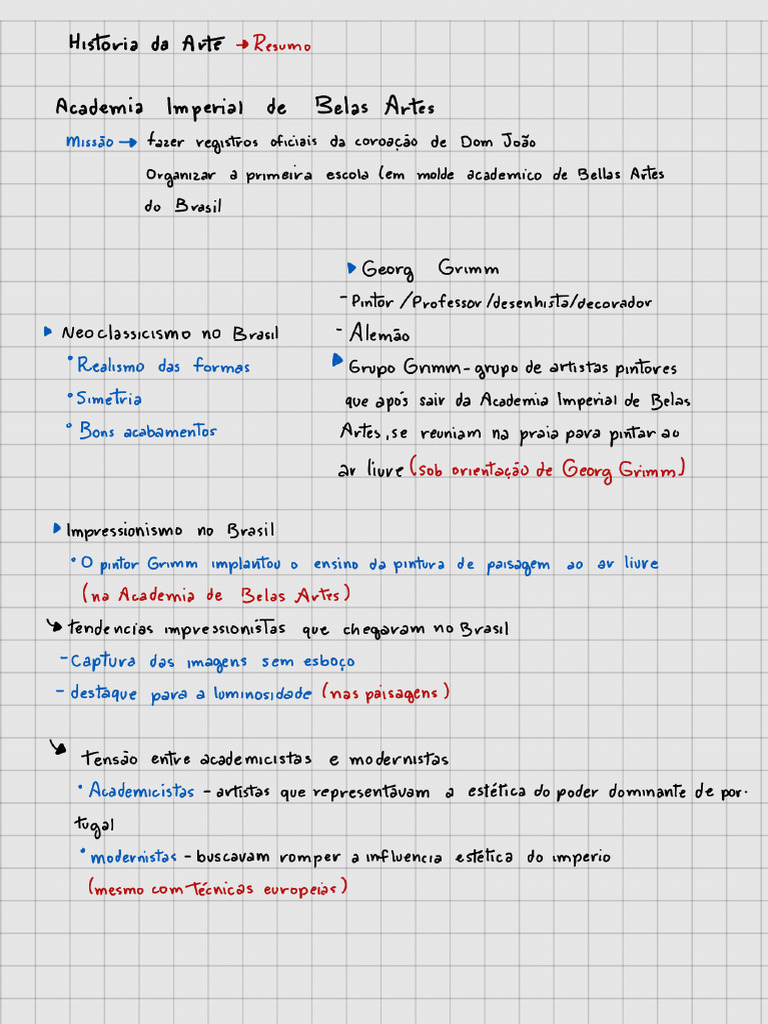 Historia da Arte → Resumo
Academia Imperial de Belas Artes
Missão → fazer registros oficiais da coroação de Dom João
Organizar a primeira escola (em molde academico de Bellas Artes
do Brasil
▸ Georg Grimm
- Pintor /Professor/desenhista/decorador
- Alemão
▸ Grupo Grimm - grupo de artistas pintores
que após sair da Academia Imperial de Belas
Artes, se reuniam na praia para pintar ao
ar livre (sob orientação de Georg Grimm)
▸ Neoclassicismo no Brasil
• Realismo das formas
• Simetria
• Bons acabamentos
▸ Impressionismo no Brasil
• O pintor Grimm implantou o ensino da pintura de paisagem ao ar livre
(na Academia de Belas Artes)
↘ tendencias impressionistas que chegavam no Brasil
- Captura das imagens sem esboço
- destaque para a luminosidade (nas paisagens)
↘ Tensão entre academicistas e modernistas
• Academicistas - artistas que representavam a estética do poder dominante de por-
tugal
• modernistas - buscavam romper a influencia estética do imperio
(mesmo com técnicas europeias)